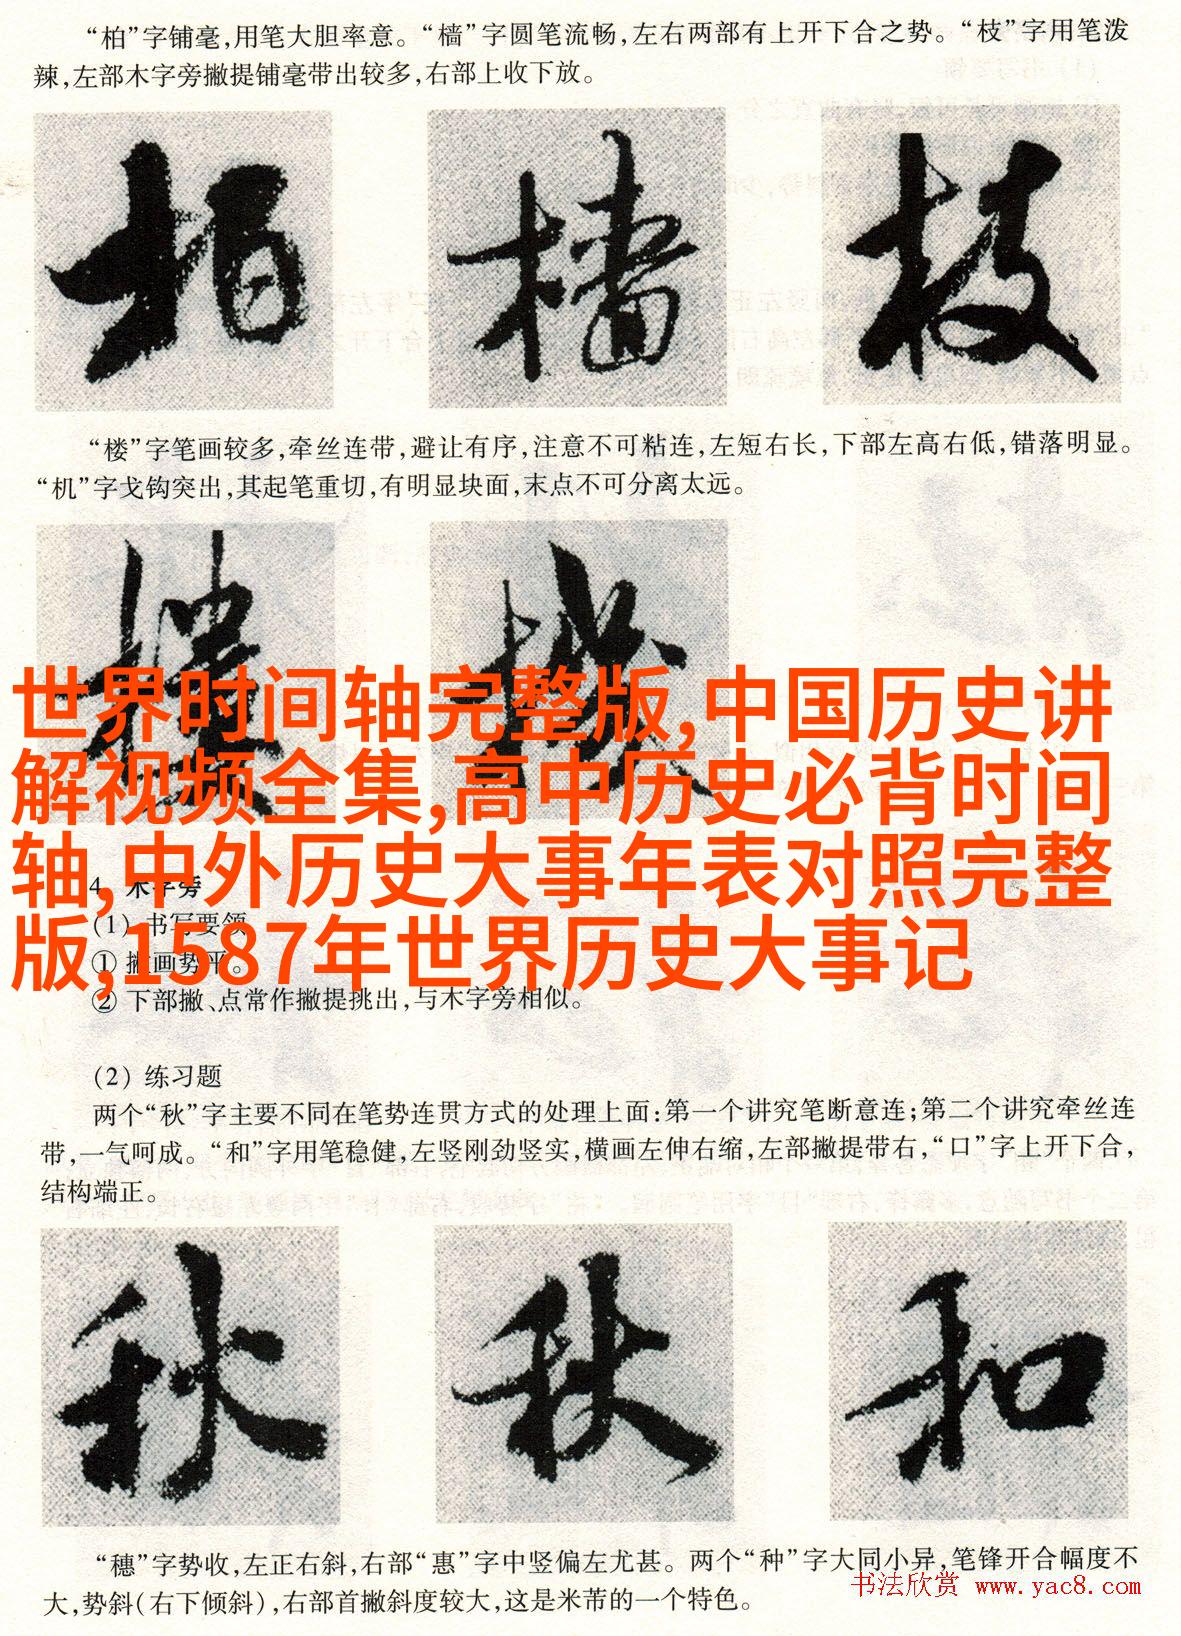 “柏”字铺毫,用笔大胆率意。“樯”字圆笔流畅,左右两部有上开下合之势。“枝”字用笔泼
辣,左部木字旁撇提铺毫带出较多,右部上收下放。
柏 樯 枝
“楼”字笔画较多,牵丝连带,避让有序,注意不可粘连,左短右长,下部左高右低,错落明显。
“机”字戈钩突出,其起笔重切,有明显块面,末点不可分离太远。
楼 機
世界时间轴完整版,中国历史讲
解视频全集,高中历史必背时间
轴,中外历史大事年表对照完整
版,1587年世界历史大事记
4. 禾字旁
(1) 书写要领
① 撇画势平。
② 下部撇、点常作撇提挑出,与木字旁相似。
(2) 练习题
两个“秋”字主要不同在笔势连贯方式的处理上面:第一个讲究笔断意连;第二个讲究牵丝连
带,一气呵成。“和”字用笔稳健,左竖刚劲竖实,横画左伸右缩,左部撇提带右,“口”字上开下合,
结构端正。
秋 秋 和
“穗”字势收,左正右斜,右部“惠”字中竖偏左尤甚。两个“种”字大同小异,笔锋开合幅度不
大,势斜(右下倾斜),右部首撇斜度较大,这是米芾的一个特色。
书法欣赏 www.yac8.com